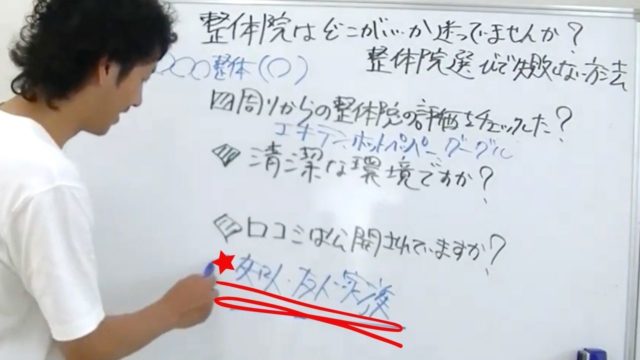 整体院はどこがいいか迷っていませんか?
整体院選びで失敗しない方法
〇〇〇整体(〇)
周りからの整体院の評価をチェックした?
エキテン、ホットペッパー、グーグル
清潔な環境ですか?
口コミは公開されていますか?
知人・友人・家族